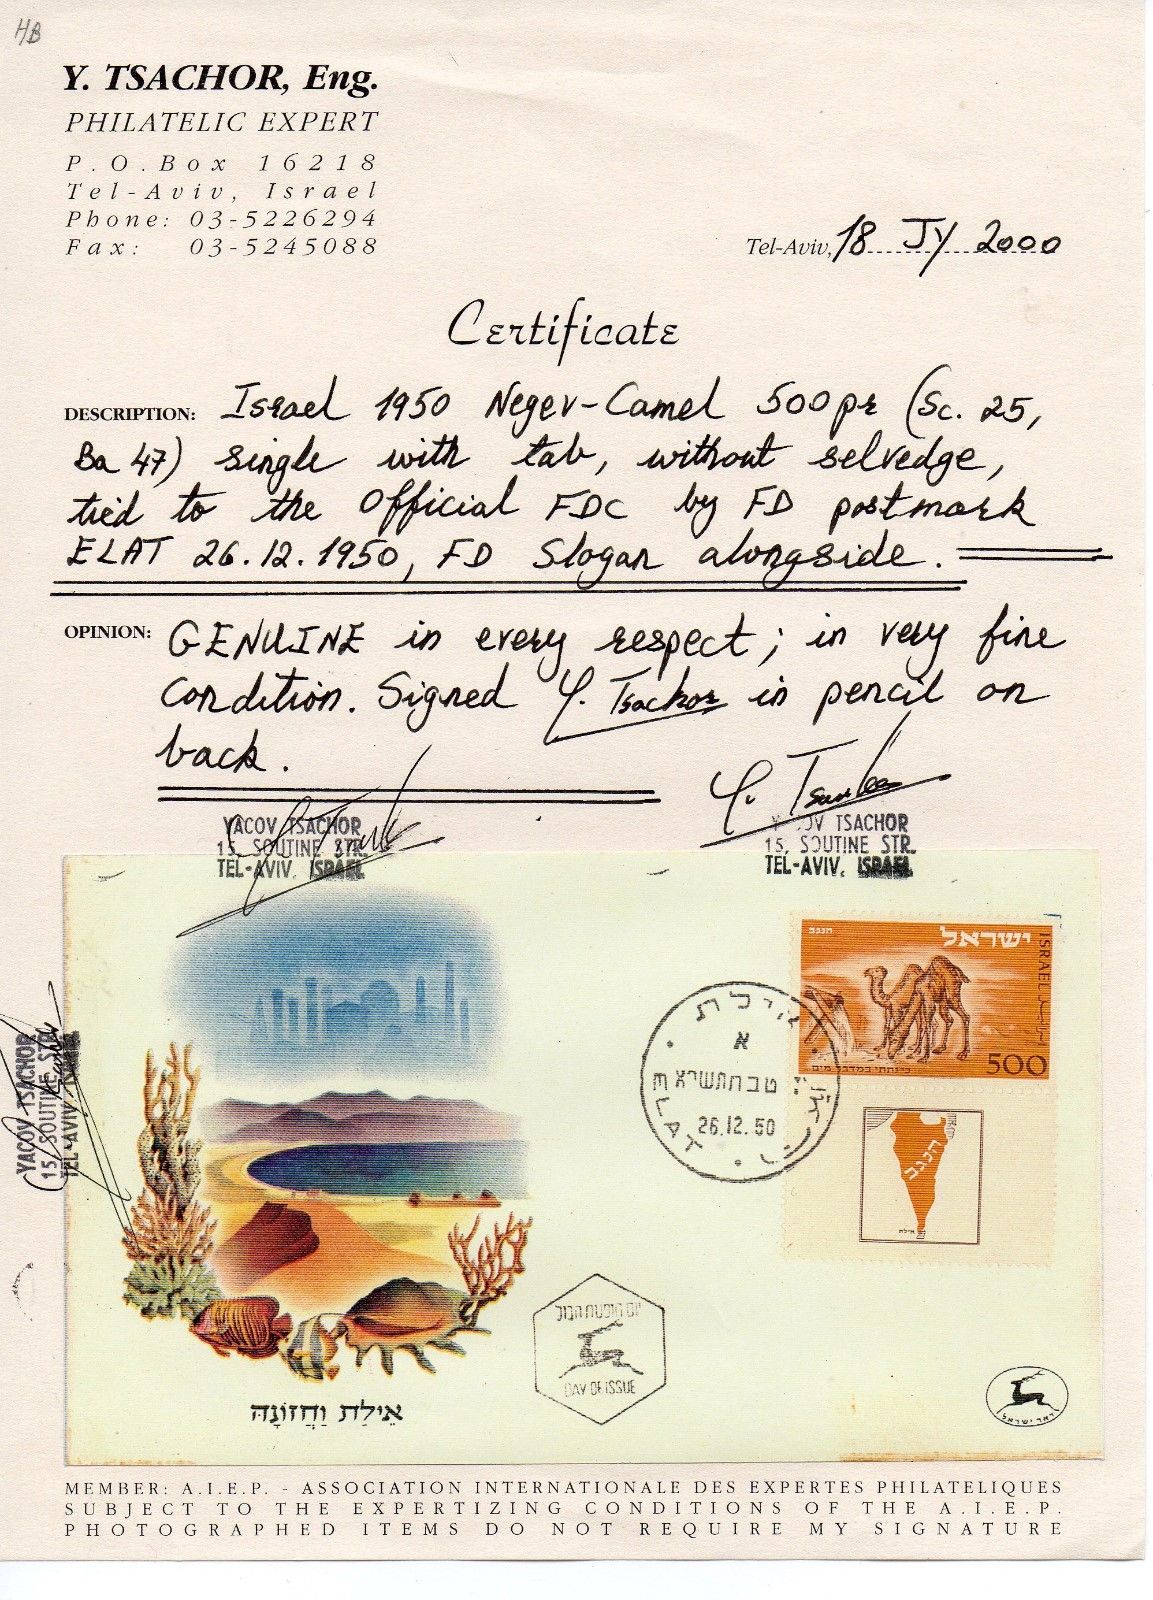 HB
Y. TSACHOR, Eng.
PHILATELIC EXPERT
P.O.Box 16218
Tel-Aviv, Israel
Phone: 03-5226294
Fax: 03-5245088
Tel-Aviv, 18 JY 2000
Certificate
DESCRIPTION: Israel 1950 Negev-Camel 500pr (Sc. 25,
Ba 47) single with tab, without selvedge,
tied to the Official FDC by FD postmark
ELAT 26.12.1950, FD Slogan alongside.
OPINION: GENUINE in every respect; in very fine
condition. Signed Y. Tsachor in pencil on
back.
Y. Tsachor
YACOV TSACHOR
15, SOUTINE STR.
TEL-AVIV, ISRAEL
YACOV TSACHOR
15, SOUTINE STR.
TEL-AVIV, ISRAEL
YACOV TSACHOR
15, SOUTINE STR.
TEL-AVIV,
הנגב
ישראל
ISRAEL
اسرائيل
500
כי נתתי במדבר מים
אילת
א
טבת תשי"א
26.12.50
ELAT
הנגב
אילת
יום הופעת הבול
DAY OF ISSUE
אֵילַת וַחֲזוֹנָהּ
דאר ישראל
MEMBER: A.I.E.P. - ASSOCIATION INTERNATIONALE DES EXPERTES PHILATELIQUES
SUBJECT TO THE EXPERTIZING CONDITIONS OF THE A.I.E.P.
PHOTOGRAPHED ITEMS DO NOT REQUIRE MY SIGNATURE